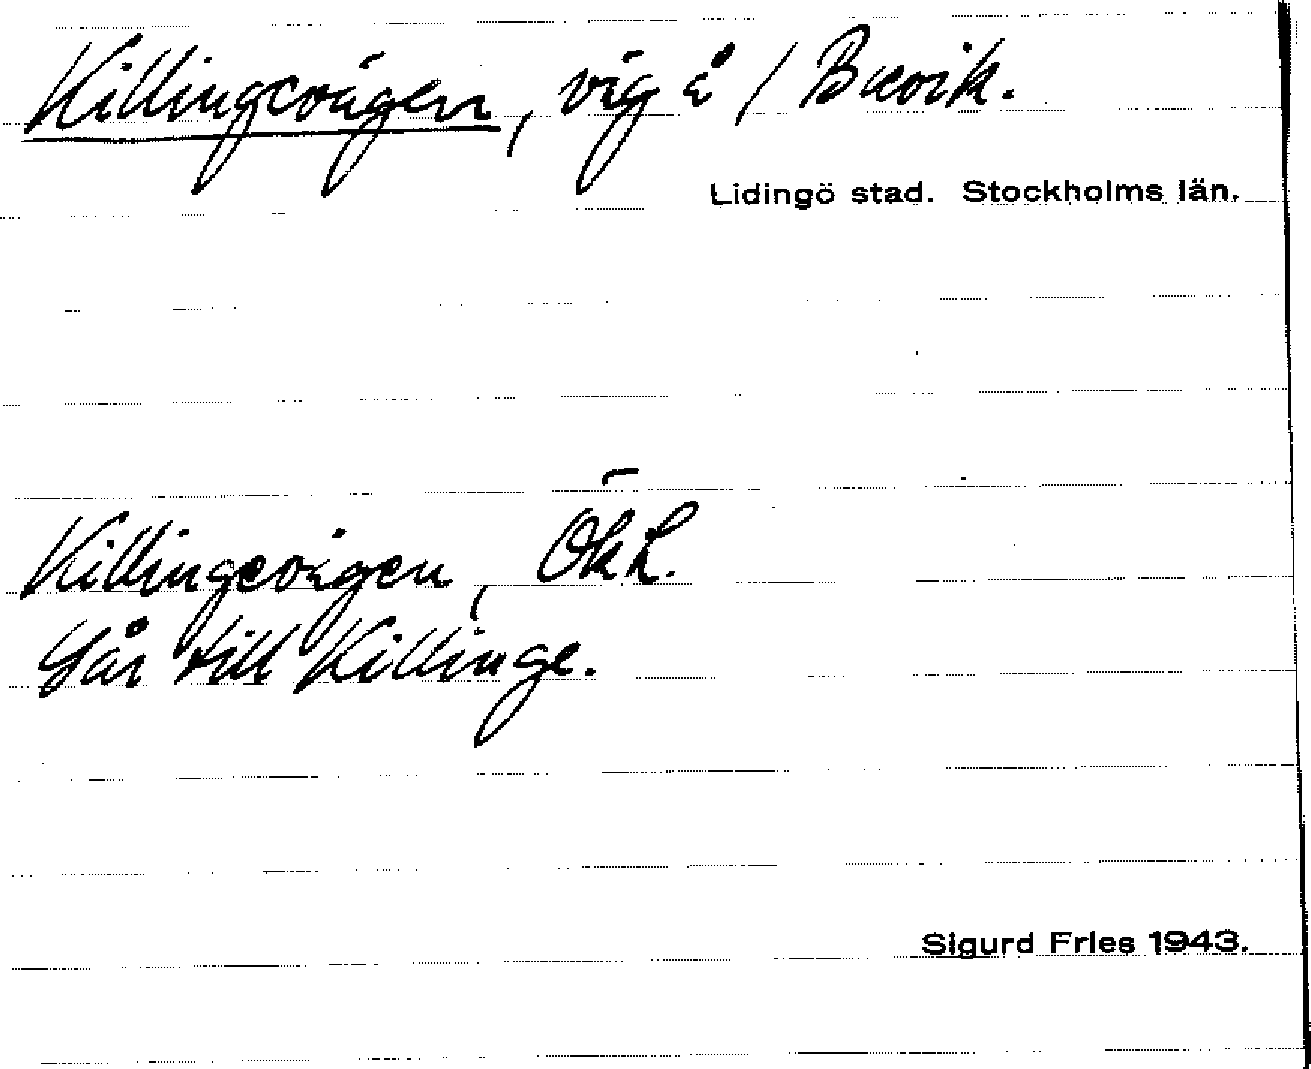 Killingevägen, väg å / Brevik.
Lidingö stad. Stockholms län.
Killingevägen, ÖkL.
Går till Killinge.
Sigurd Fries 1943.